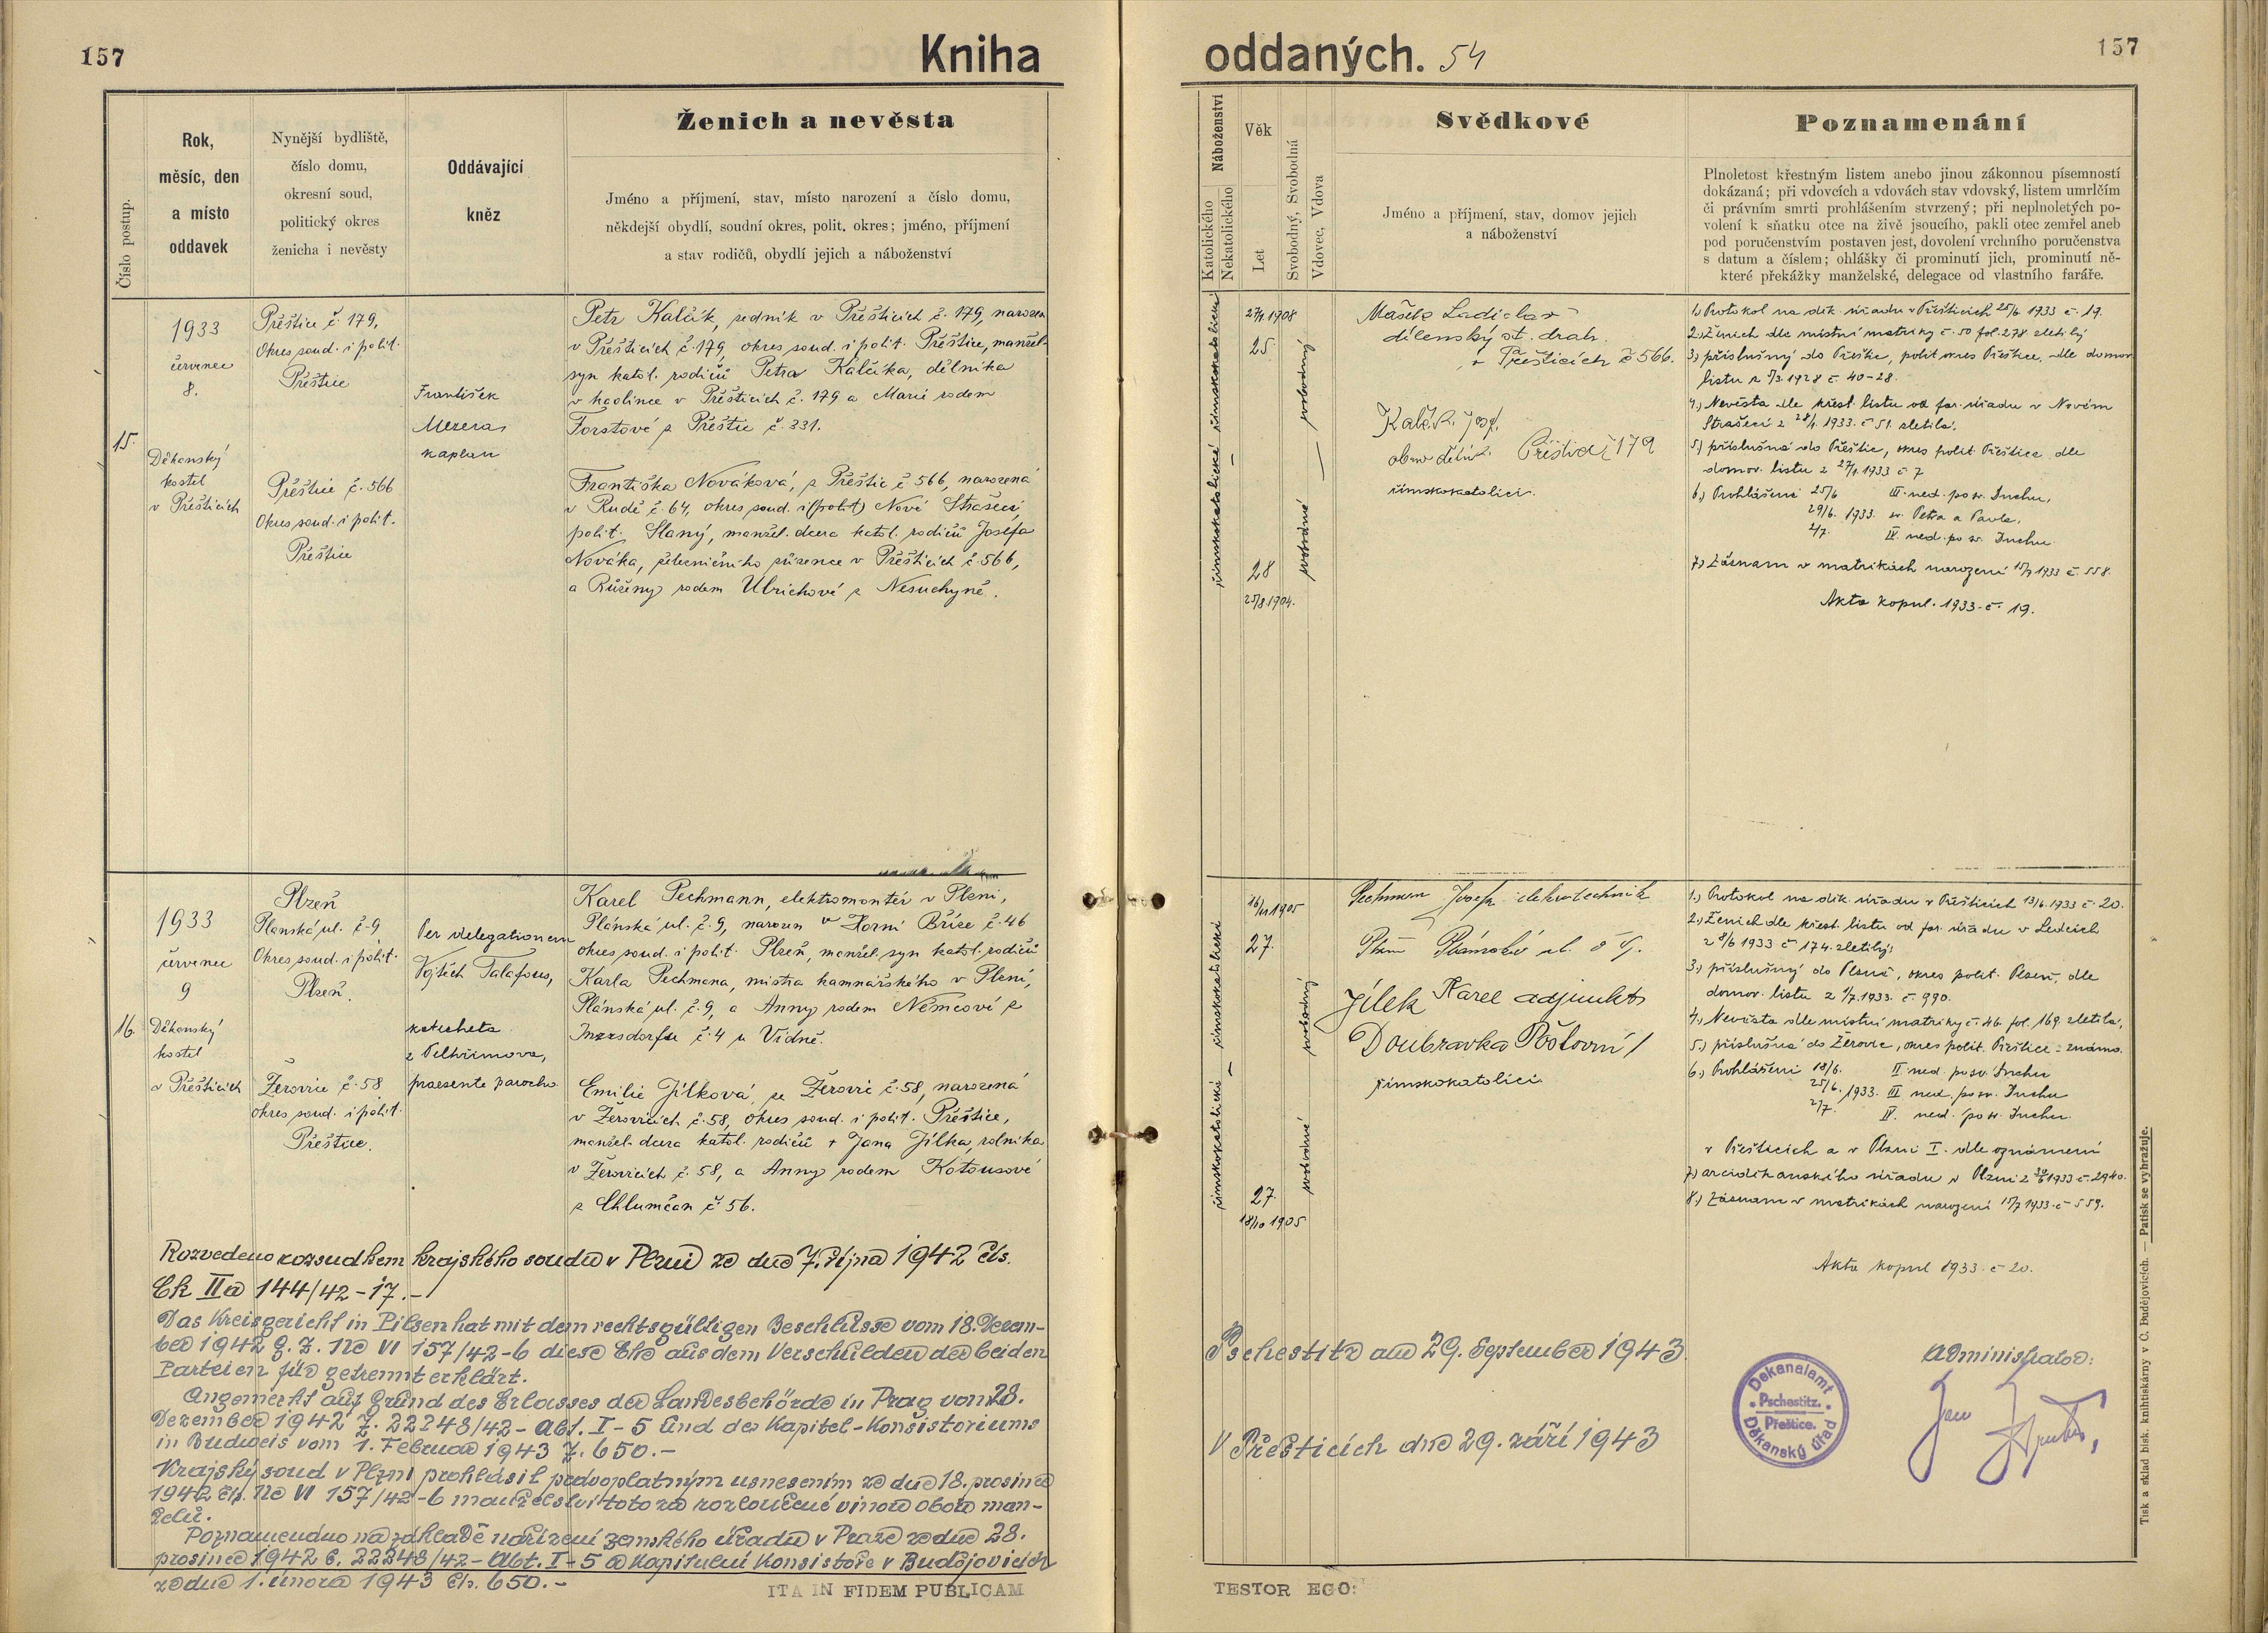 157
Kniha
oddaných. 54
157
Číslo postup.
Rok,
měsíc, den
a místo
oddavek
Nynější bydliště,
číslo domu,
okresní soud,
politický okres
ženicha i nevěsty
Oddávající
kněz
Ženich a nevěsta
Jméno a příjmení, stav, místo narození a číslo domu,
někdejší obydlí, soudní okres, polit. okres; jméno, příjmení
a stav rodičů, obydlí jejich a náboženství
Náboženství
Katolického
Nekatolického
Věk
Let
Svobodný, Svobodná
Vdovec, Vdova
Svědkové
Jméno a příjmení, stav, domov jejich
a náboženství
Poznamenání
Plnoletost křestným listem anebo jinou zákonnou písemností
dokázaná; při vdovcích a vdovách stav vdovský, listem umrlčím
či právním smrti prohlášením stvrzený; při neplnoletých po-
volení k sňatku otce na živě jsoucího, pakli otec zemřel aneb
pod poručenstvím postaven jest, dovolení vrchního poručenstva
s datum a číslem; ohlášky či prominutí jich, prominutí ně-
které překážky manželské, delegace od vlastního faráře.
15.
1933
červenec
8.
Děkanský
kostel
v Přešticích
Přeštice č. 179,
Okres soud. i polit.
Přeštice
Přeštice č. 566
Okres soud. i polit.
Přeštice
František
Mezera,
kaplan
Petr Kalčík, zedník v Přešticích č. 179, narozen
v Přešticích č. 179, okres soud. i polit. Přeštice, manžel.
syn katol. rodičů Petra Kalčíka, dělníka
v kaolince v Přešticích č. 179 a Marie rodem
Forstové z Přeštic č. 331.
Františka Nováková, z Přeštic č 566, narozená
v Rudě č. 64, okres soud. i (polit) Nové Strašecí,
polit. Slaný, manžel. dcera katol. rodičů Josefa
Nováka, železničního zřízence v Přešticích č. 566,
a Růženy rodem Ulrichové z Nesuchyně.
římskokatolické — římskokatolické
27/1 1908
25.
28
25/8 1904.
svobodné — svobodný
Mašek Ladislav
dílenský st. drah.
v Přešticích č 566.
Kalčík Josef.
Přeštice č 179
římskokatolíci.
1.) Protokol na děk. úřadu v Přešticích 25/6 1933 č. 19.
2.) Ženich dle místní matriky č. 50 fol. 278 zletilý
3.) příslušný do Přeštic, polit. okres Přeštice, dle domov.
listu z 5/3 1928 č. 40-28.
4.) Nevěsta dle křest. listu od far. úřadu v Novém
Strašecí z 28/4. 1933. č 51. zletilá.
5.) příslušná do Přeštic, okres polit. Přeštice dle
domov. listu z 27/1. 1933 č. 7
6.) Prohlášení 25/6 III. ned. po sv. Duchu,
29/6. 1933. sv. Petra a Pavla,
2/7. IV. ned. po sv. Duchu
7.) Záznam v matrikách narození 15/7 1933 č. 558.
Akta kopul. 1933. č. 19.
16.
1933
červenec
9
Děkanský
kostel
v Přešticích
Plzeň
Plánská ul. č. 9
Okres soud. i polit.
Plzeň.
Žerovice č. 58
okres soud. i polit.
Přeštice.
Per delegationem
Vojtěch Talafous,
katecheta
z Pelhřimova,
praesente parocho
Karel Pechmann, elektromontér v Plzni,
Plánská ul. č. 9, narozen v Horní Bříze č. 46
okres soud. i polit. Plzeň, manžel. syn katol. rodičů
Karla Pechmana, mistra kamnářského v Plzni,
Plánská ul. č. 9, a Anny rodem Němcové z
Inzersdorfu č. 4 u Vídně.
Emilie Jílková, ze Žerovic č. 58, narozená
v Žerovicích č. 58, okres soud. i polit. Přeštice,
manžel. dcera katol. rodičů + Jana Jílka, rolníka
v Žerovicích č. 58, a Anny rodem Kotousové
z Chlumčan č. 56.
římskokatolické — římskokatolické
16/11 1905
27.
27.
18/10 1905
svobodné svobodný
Pechman Josef elektrotechnik
Plzeň Plánská ul. č 9.
Jílek Karel adjunkt
Doubravka Poštovní 1
římskokatolíci.
1.) Protokol na děk. úřadu v Přešticích 13/6. 1933 č. 20.
2.) Ženich dle křest. listu od far. úřadu v Ledcích
z 8/6 1933 č 174. zletilý;
3.) příslušný do Plzně, okres polit. Plzeň, dle
domov. listu z 1/7. 1933. č. 990.
4.) Nevěsta dle místní matriky č. 46. fol. 169. zletilá,
5.) příslušná do Žerovic, okres polit. Přeštice - známo.
6.) Prohlášení 18/6. II ned. po sv. Duchu
25/6. 1933. III ned. po sv. Duchu
2/7. IV. ned. po sv. Duchu.
v Přešticích a v Plzni I. dle oznámení
7.) arciděkanského úřadu v Plzni z 30/6 1933 č. 2940.
8.) Záznam v matrikách narození 15/7 1933. č 559.
Akta kopul 1933. č 20.
Rozvedeno rozsudkem krajského soudu v Plzni ze dne 7. října 1942 čís.
Ck IIa 144/42-17.-
Das Kreisgericht in Pilsen hat mit dem rechtsgültigen Beschlusse vom 18. Dezem-
ber 1942 G. Z. Nc VI 157/42-6 diese Ehe aus dem Verschulden der beiden
Parteien für getrennt erklärt.
Angemerkt auf Grund des Erlasses der Landesbehörde in Prag vom 28.
Dezember 1942 Z. 22248/42 - Abt. I-5 und des Kapitel-Konsistoriums
in Budweis vom 1. Februar 1943 Z. 650.-
Krajský soud v Plzni prohlásil pravoplatným usnesením ze dne 18. prosince
1942 čís. Nc VI 157/42-6 manželství toto za rozloučené vinou obou man-
želů.
Poznamenáno na základě nařízení zemského úřadu v Praze ze dne 28.
prosince 1942 č. 22248/42 - Abt. I-5 a Kapitulní Konsistoře v Budějovicích
ze dne 1. února 1943 čís. 650.-
Pschestitz am 29. September 1943.
V Přešticích dne 29. září 1943
Dekanalamt
Pschestitz.
Přeštice.
Děkanský úřad
Administrator:
Jan
ITA IN FIDEM PUBLICAM
TESTOR EGO:
Tisk a sklad bisk. knihtiskárny v Č. Budějovicích. — Patisk se vyhražuje.